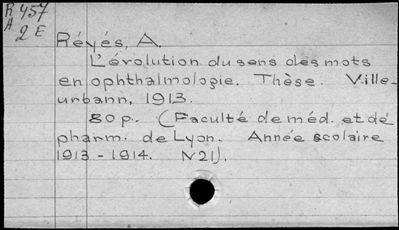 R 457
A 2 E
Réyés, A.
L'évolution du sens des mots
en ophthalmologie. Thèse. Ville-
urbann, 1913.
80 p. (Faculté de méd. et de
pharm. de Lyon. Année scolaire
1913-1914. N21).